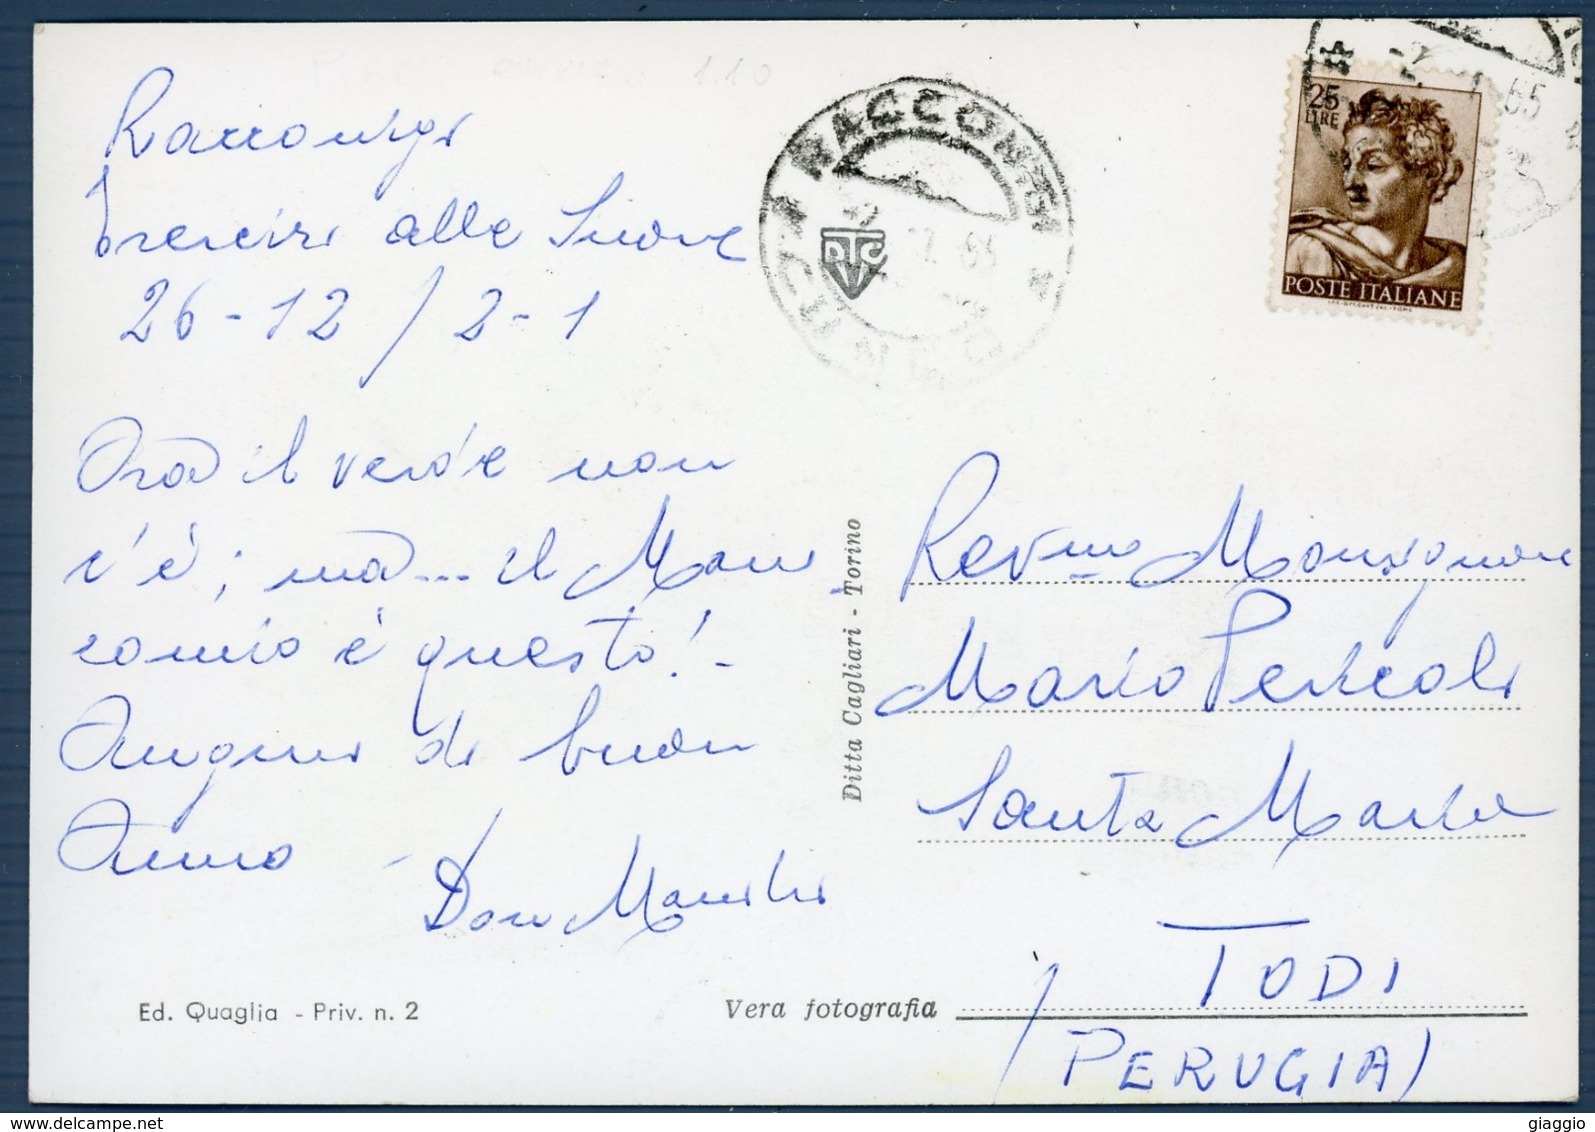 Racconigi
Esercizi alle Suore
26-12 / 2-1
Ora il verde non
c'è; ma... il Mani
comio è questo! -
Auguri di buon
Anno -
Don
Ed. Quaglia - Priv. n. 2
RACCONIGI
CUNEO
PTC
65
Ditta Cagliari - Torino
25
LIRE
POSTE ITALIANE
65
Rev.mo Monsignore
Mario Pericoli
Santa Maria
TODI
(PERUGIA)
Vera fotografia
delcampe.net
giaggio